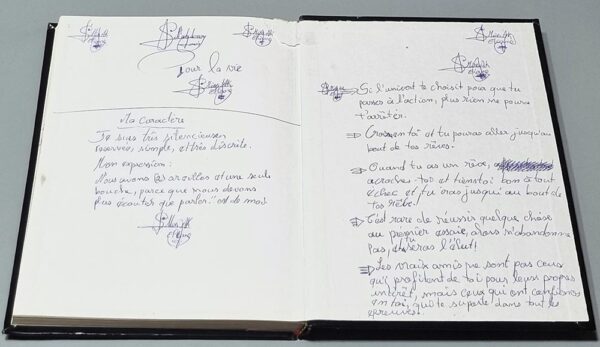 Pour la vie
Ma Caractère
Je suis très silencieuse
reservée, simple, et très discrète.
Mon expression :
Nous avons oreilles et une seule
bouche, parce que nous devons
plus écouter que parler!
Si l'univert te choisit pour que tu
passes à l'action, plus rien ne pourra
t'arrêter.
Crois en toi et tu pouras aller jusqu'au
bout de tes rêves.
Quand tu as un rêve,
acroches-toi et tiens toi bon à tout
échec et tu iras jusqu'au bout de
ton rêve!
C'est rare de réussir quelque chose
au premier essaie, alors n'abandonne
Pas, tu seras l'élut!
Les vrais amis ne sont pas ceux
qui profitent de toi pour leur propre
intérêt, mais ceux qui ont confience
en toi, qui te suporte dans tout les
épreuves!